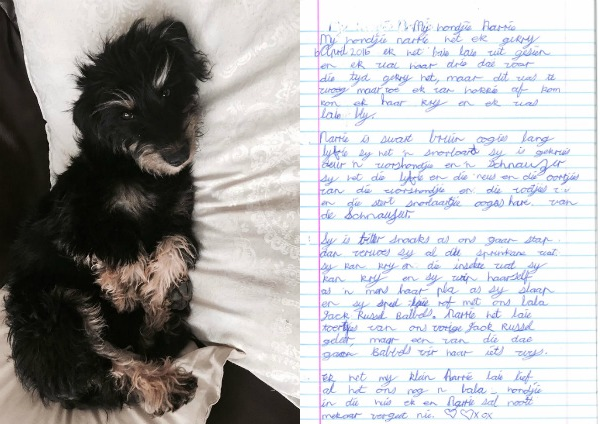 My hondjie Narrie
My hondjie narrie het ek gekry
6 April 2016 ek het baie laas uit gesien
en ek was haar drie dae voor
die tyd gekry het, maar dit was te
vroeg maar toe ek van af kom
kon ek haar kry en ek was
baie bly.
Narrie is swart bruin oogies lang
lyfie sy het 'n snorbaard sy is gekruis
deur 'n worshondjie en 'n Schnauzer
sy het die lyfie en die neus en die oortjies
van die worshondjie en die voetjies
en die stert snorbaartjie oogies hare. van
die Schnauzer.
Sy is snaaks as ons gaan stap.
dan verwoes sy al die sprinkane wat
sy kan kry en die insekte wat sy
kan kry en sy haarself
as 'n mens haar pla as sy slaap
en sy speel baie rof met ons bala
Jack Russel Balbols. Narrie het baie
van ons vorige Jack Russel
geleer, maar een van die dae
gaan Balbols vir haar iets wys.
Ek het my klein Narrie baie lief
al het ons nog 'n bala hondjie
in die huis ek en Narrie sal nooit
mekaar vergeet nie. ♡♡xox